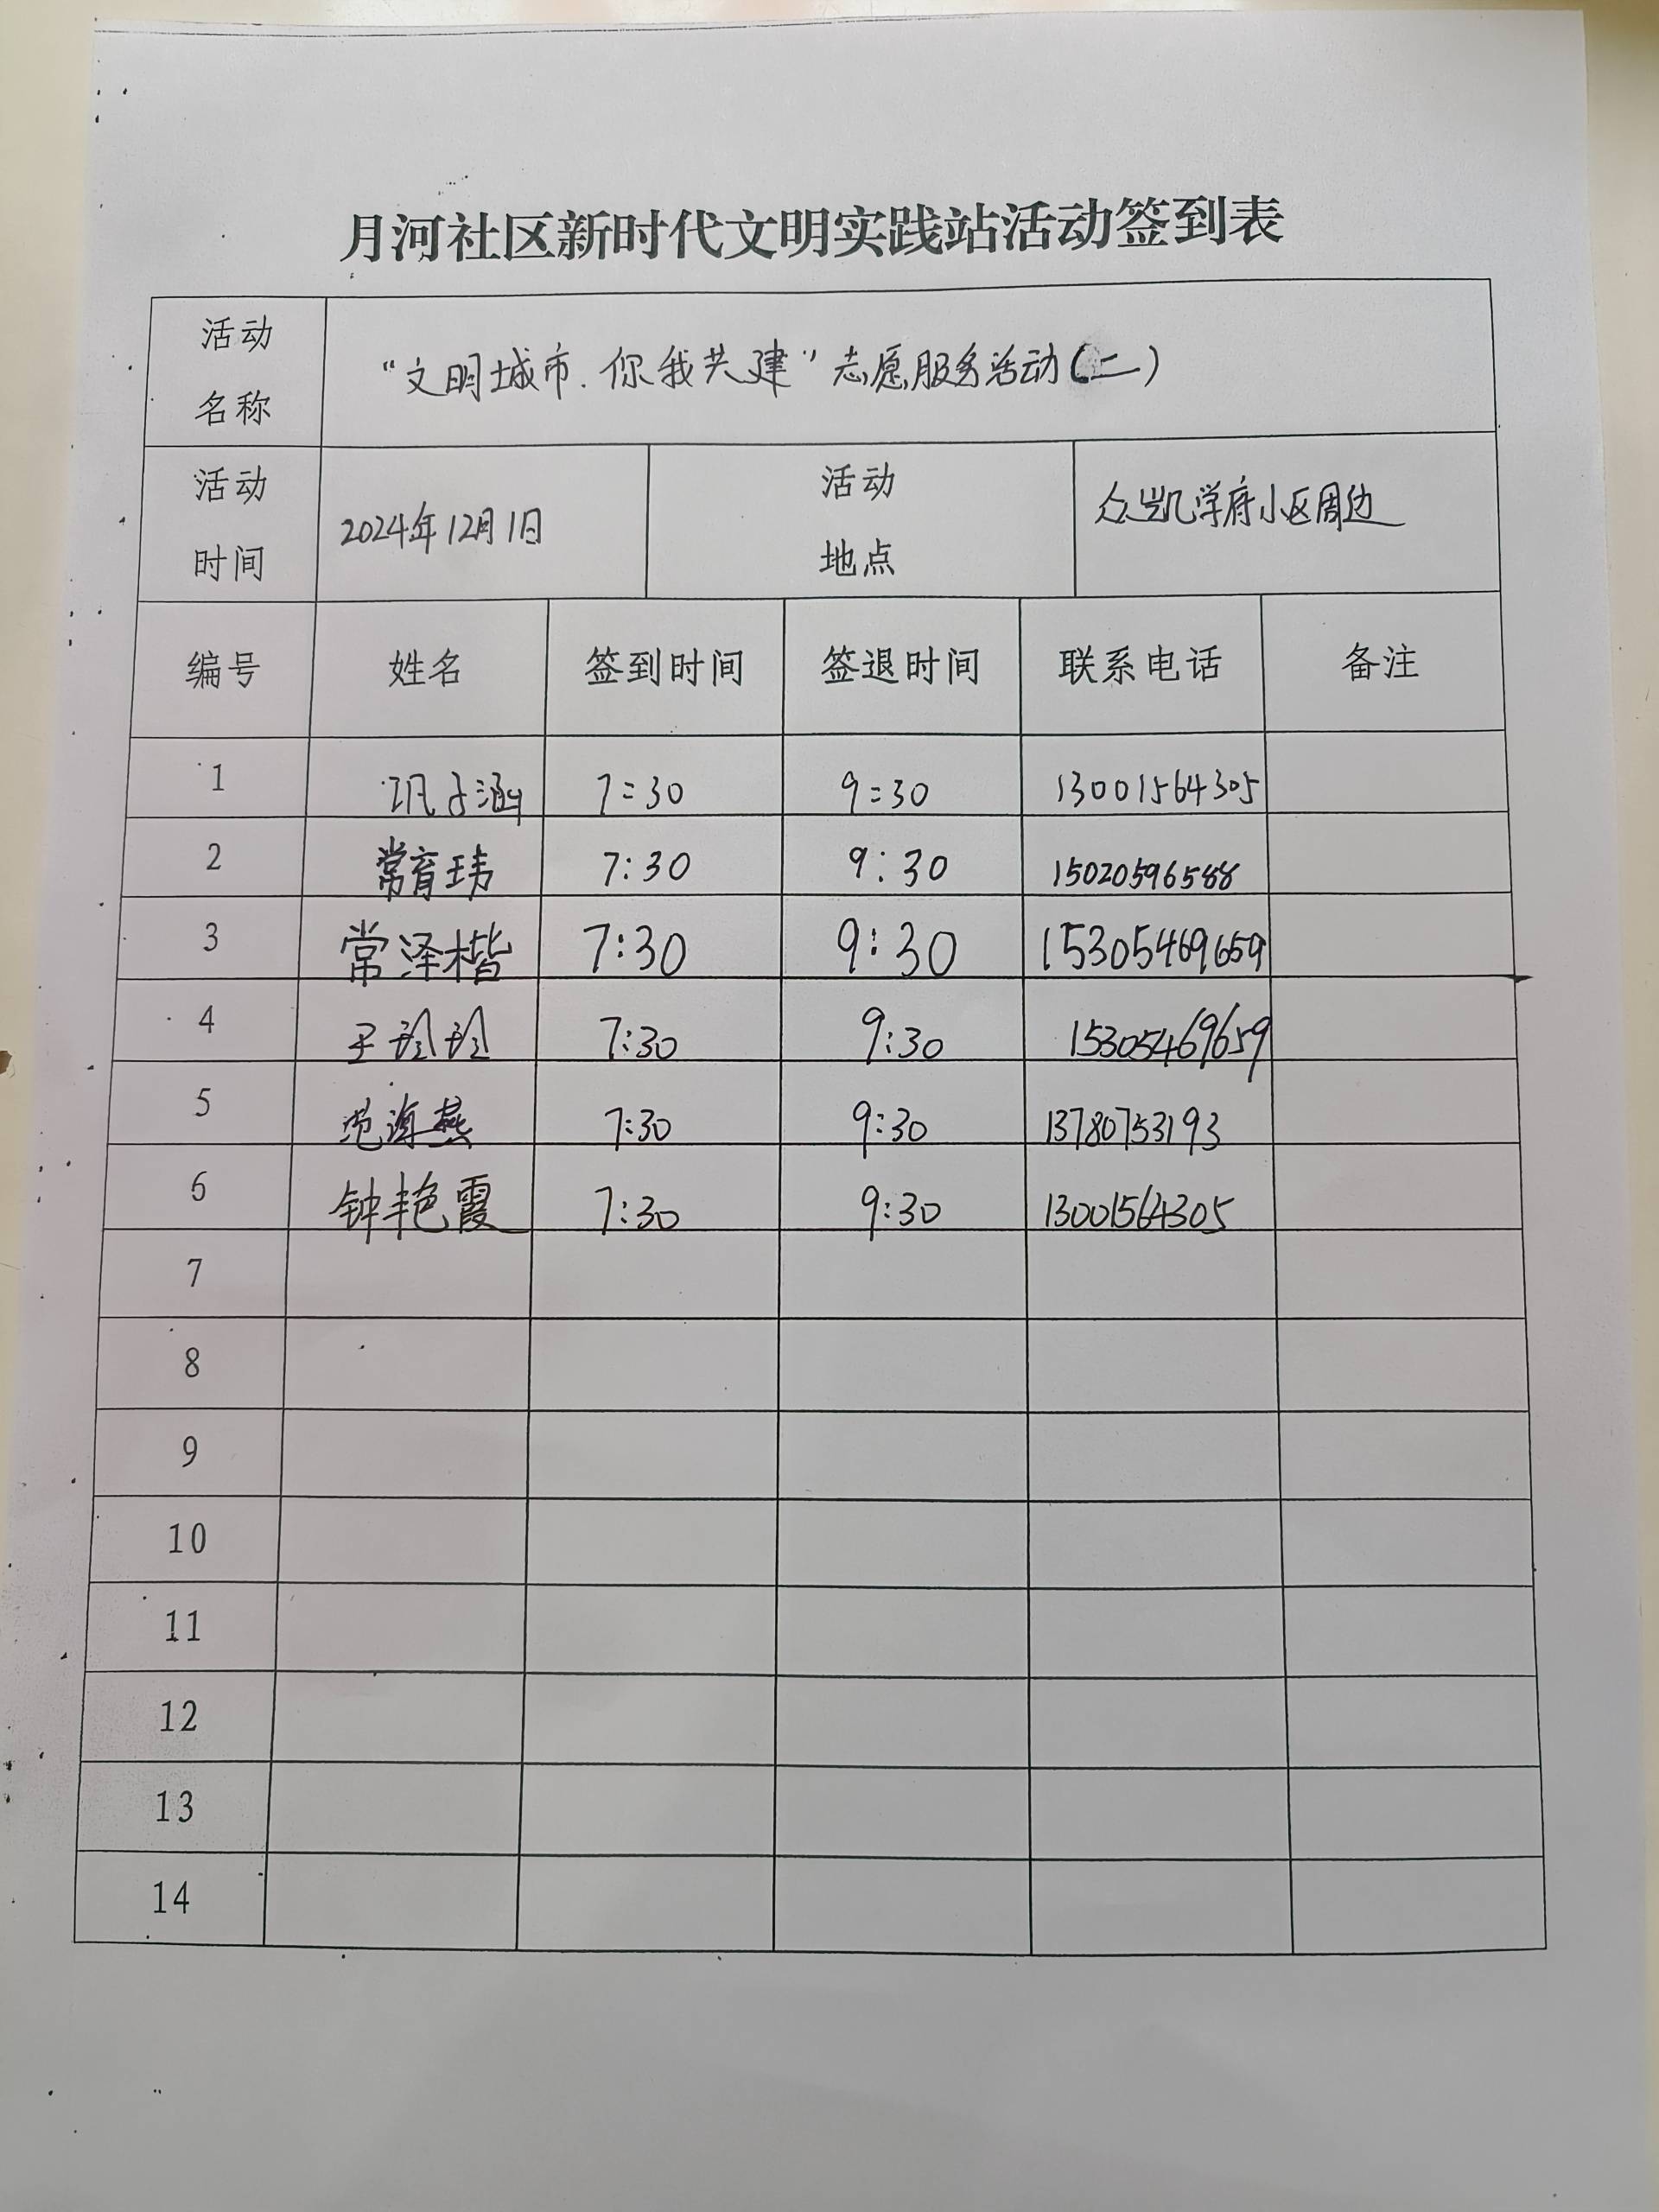 月河社区新时代文明实践站活动签到表
活动名称 “文明城市、你我共建”志愿服务活动(二)
活动时间 2024年12月1日 活动地点 众凯学府小区周边
编号 姓名 签到时间 签退时间 联系电话 备注
1 子涵 7:30 9:30 13001564305
2 常育玮 7:30 9:30 15020596588
3 常泽楷 7:30 9:30 15305469659
4 王玲玲 7:30 9:30 15305469659
5 范海燕 7:30 9:30 13780753193
6 钟艳霞 7:30 9:30 13001564305
7
8
9
10
11
12
13
14